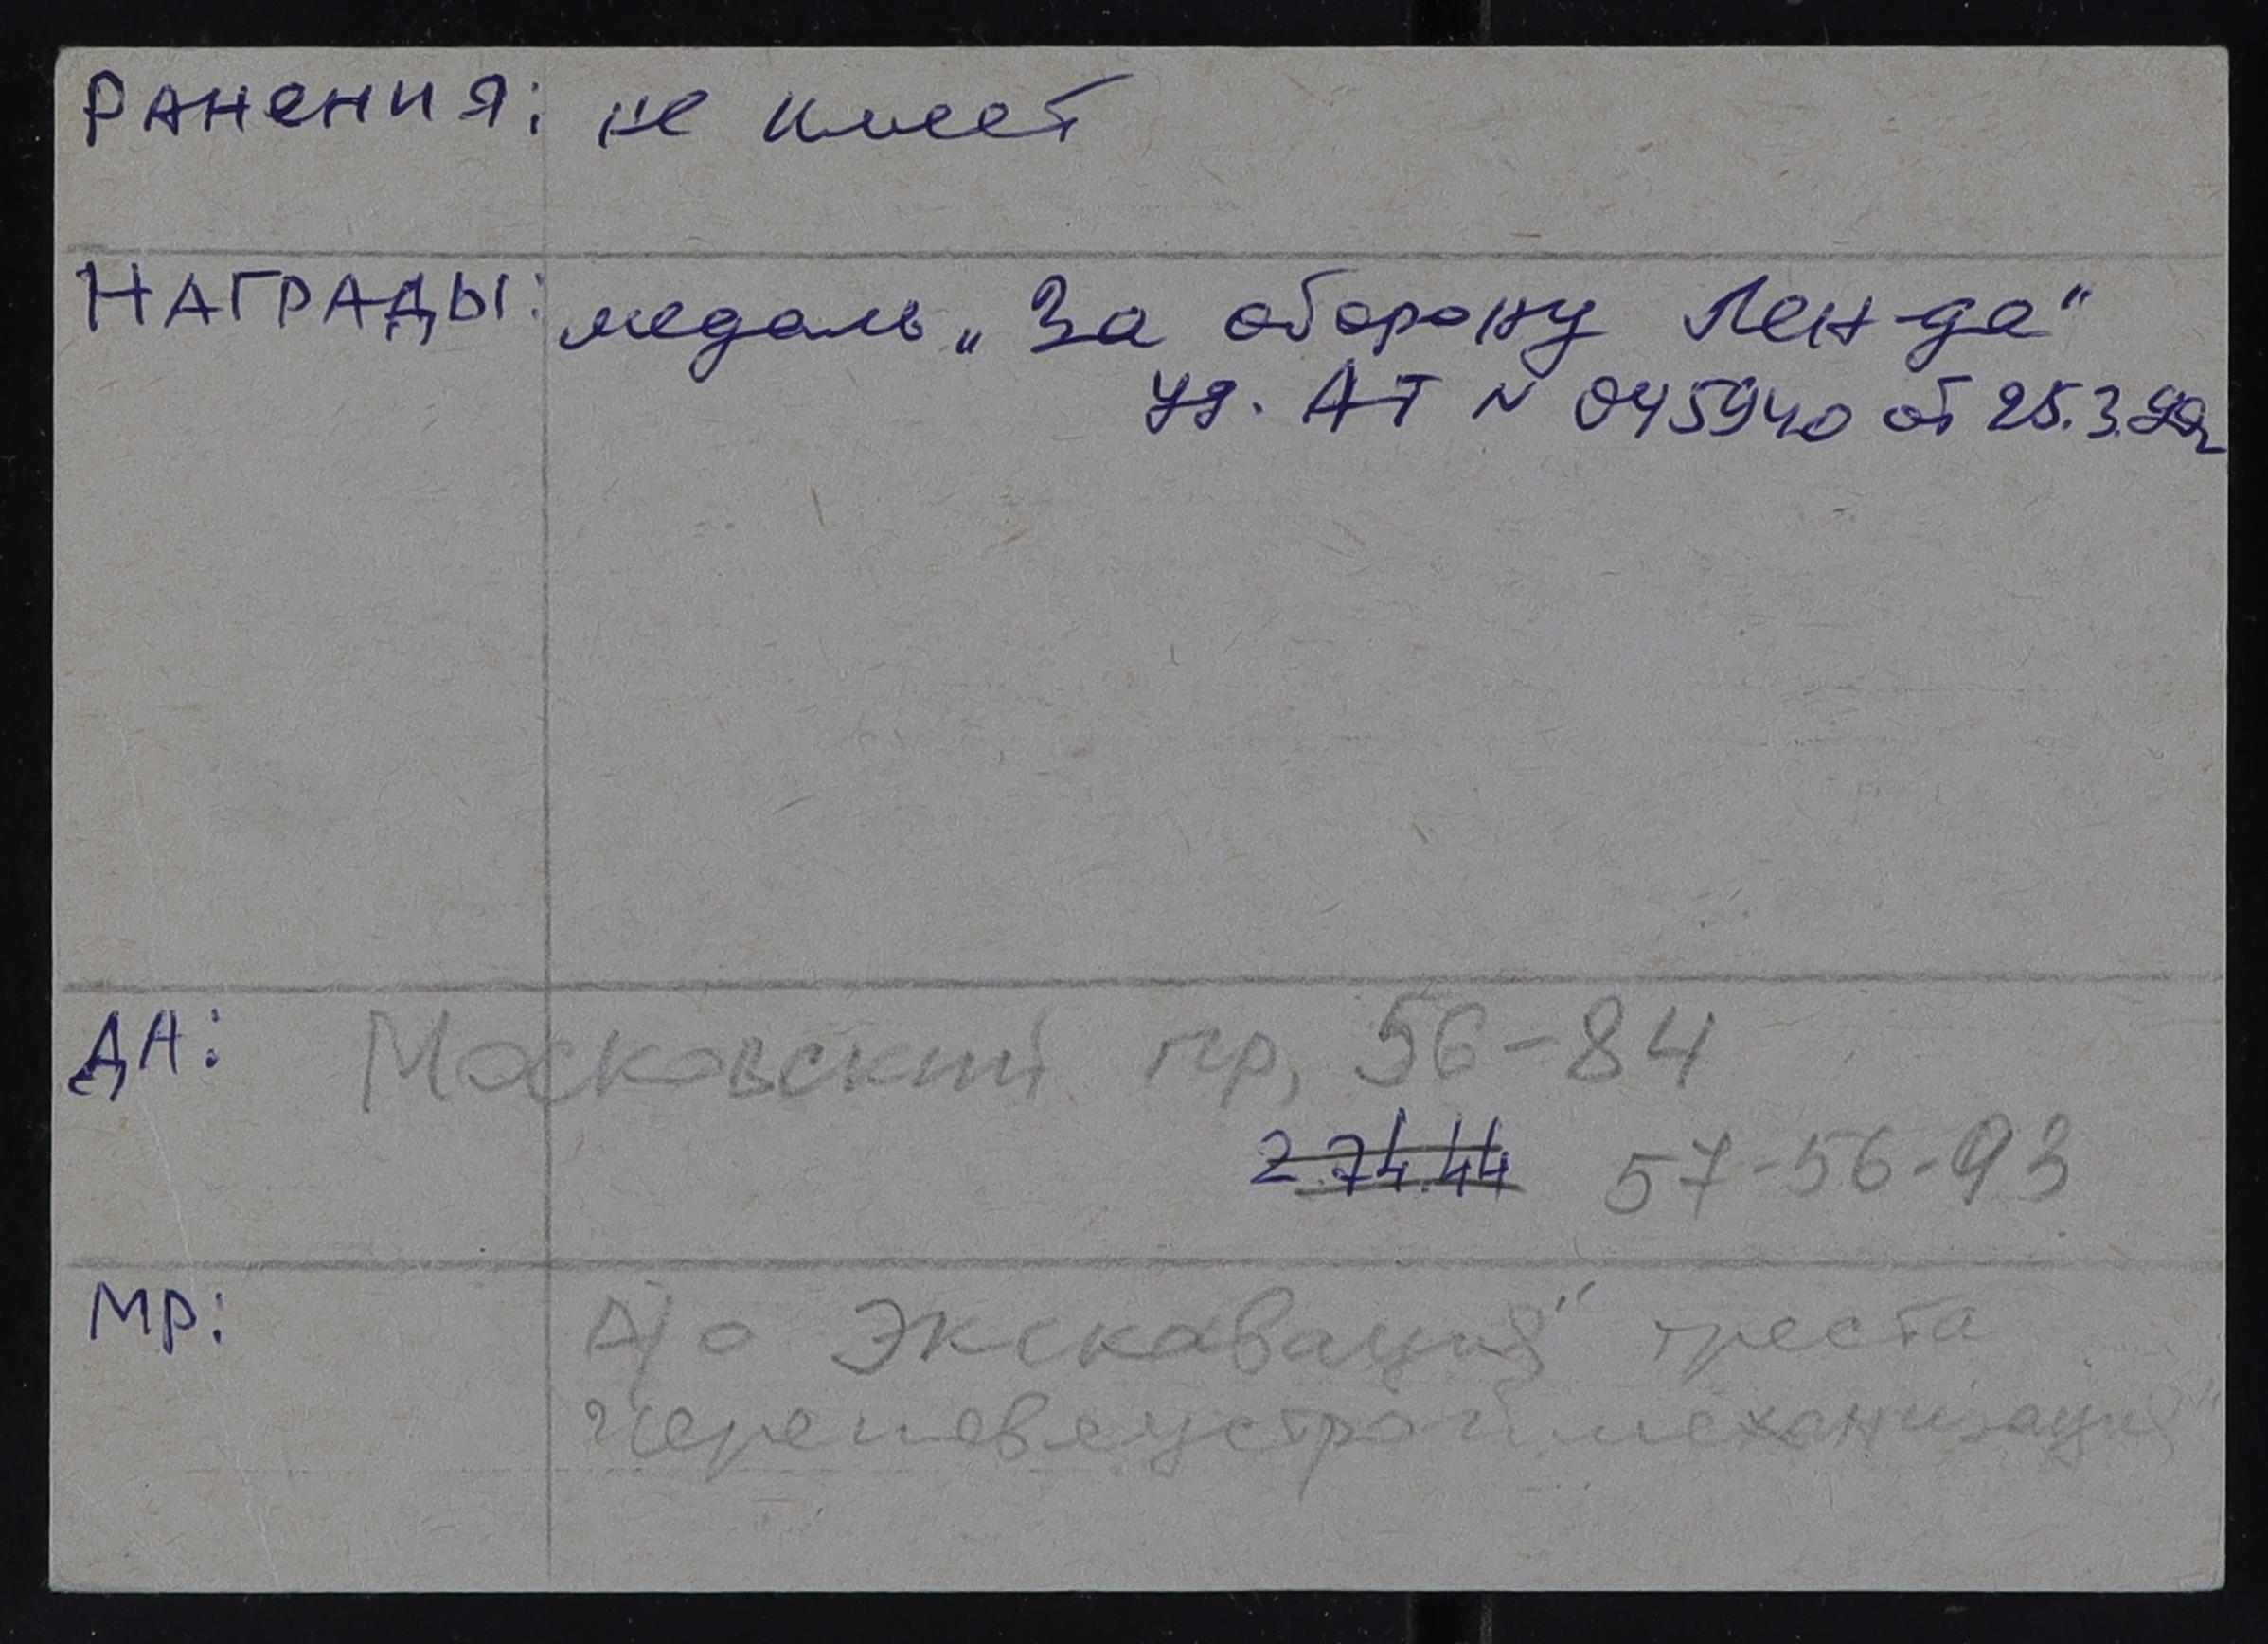 РАНЕНИЯ: не имеет
НАГРАДЫ: медаль „За оборону Лен-да"
уд. АТ N 045940 от 25.3.
ДА: Московский пр, 56-84
2.74.44 57-56-93
МР: А/о Экскавация" треста
Череповецстроймеханизация"